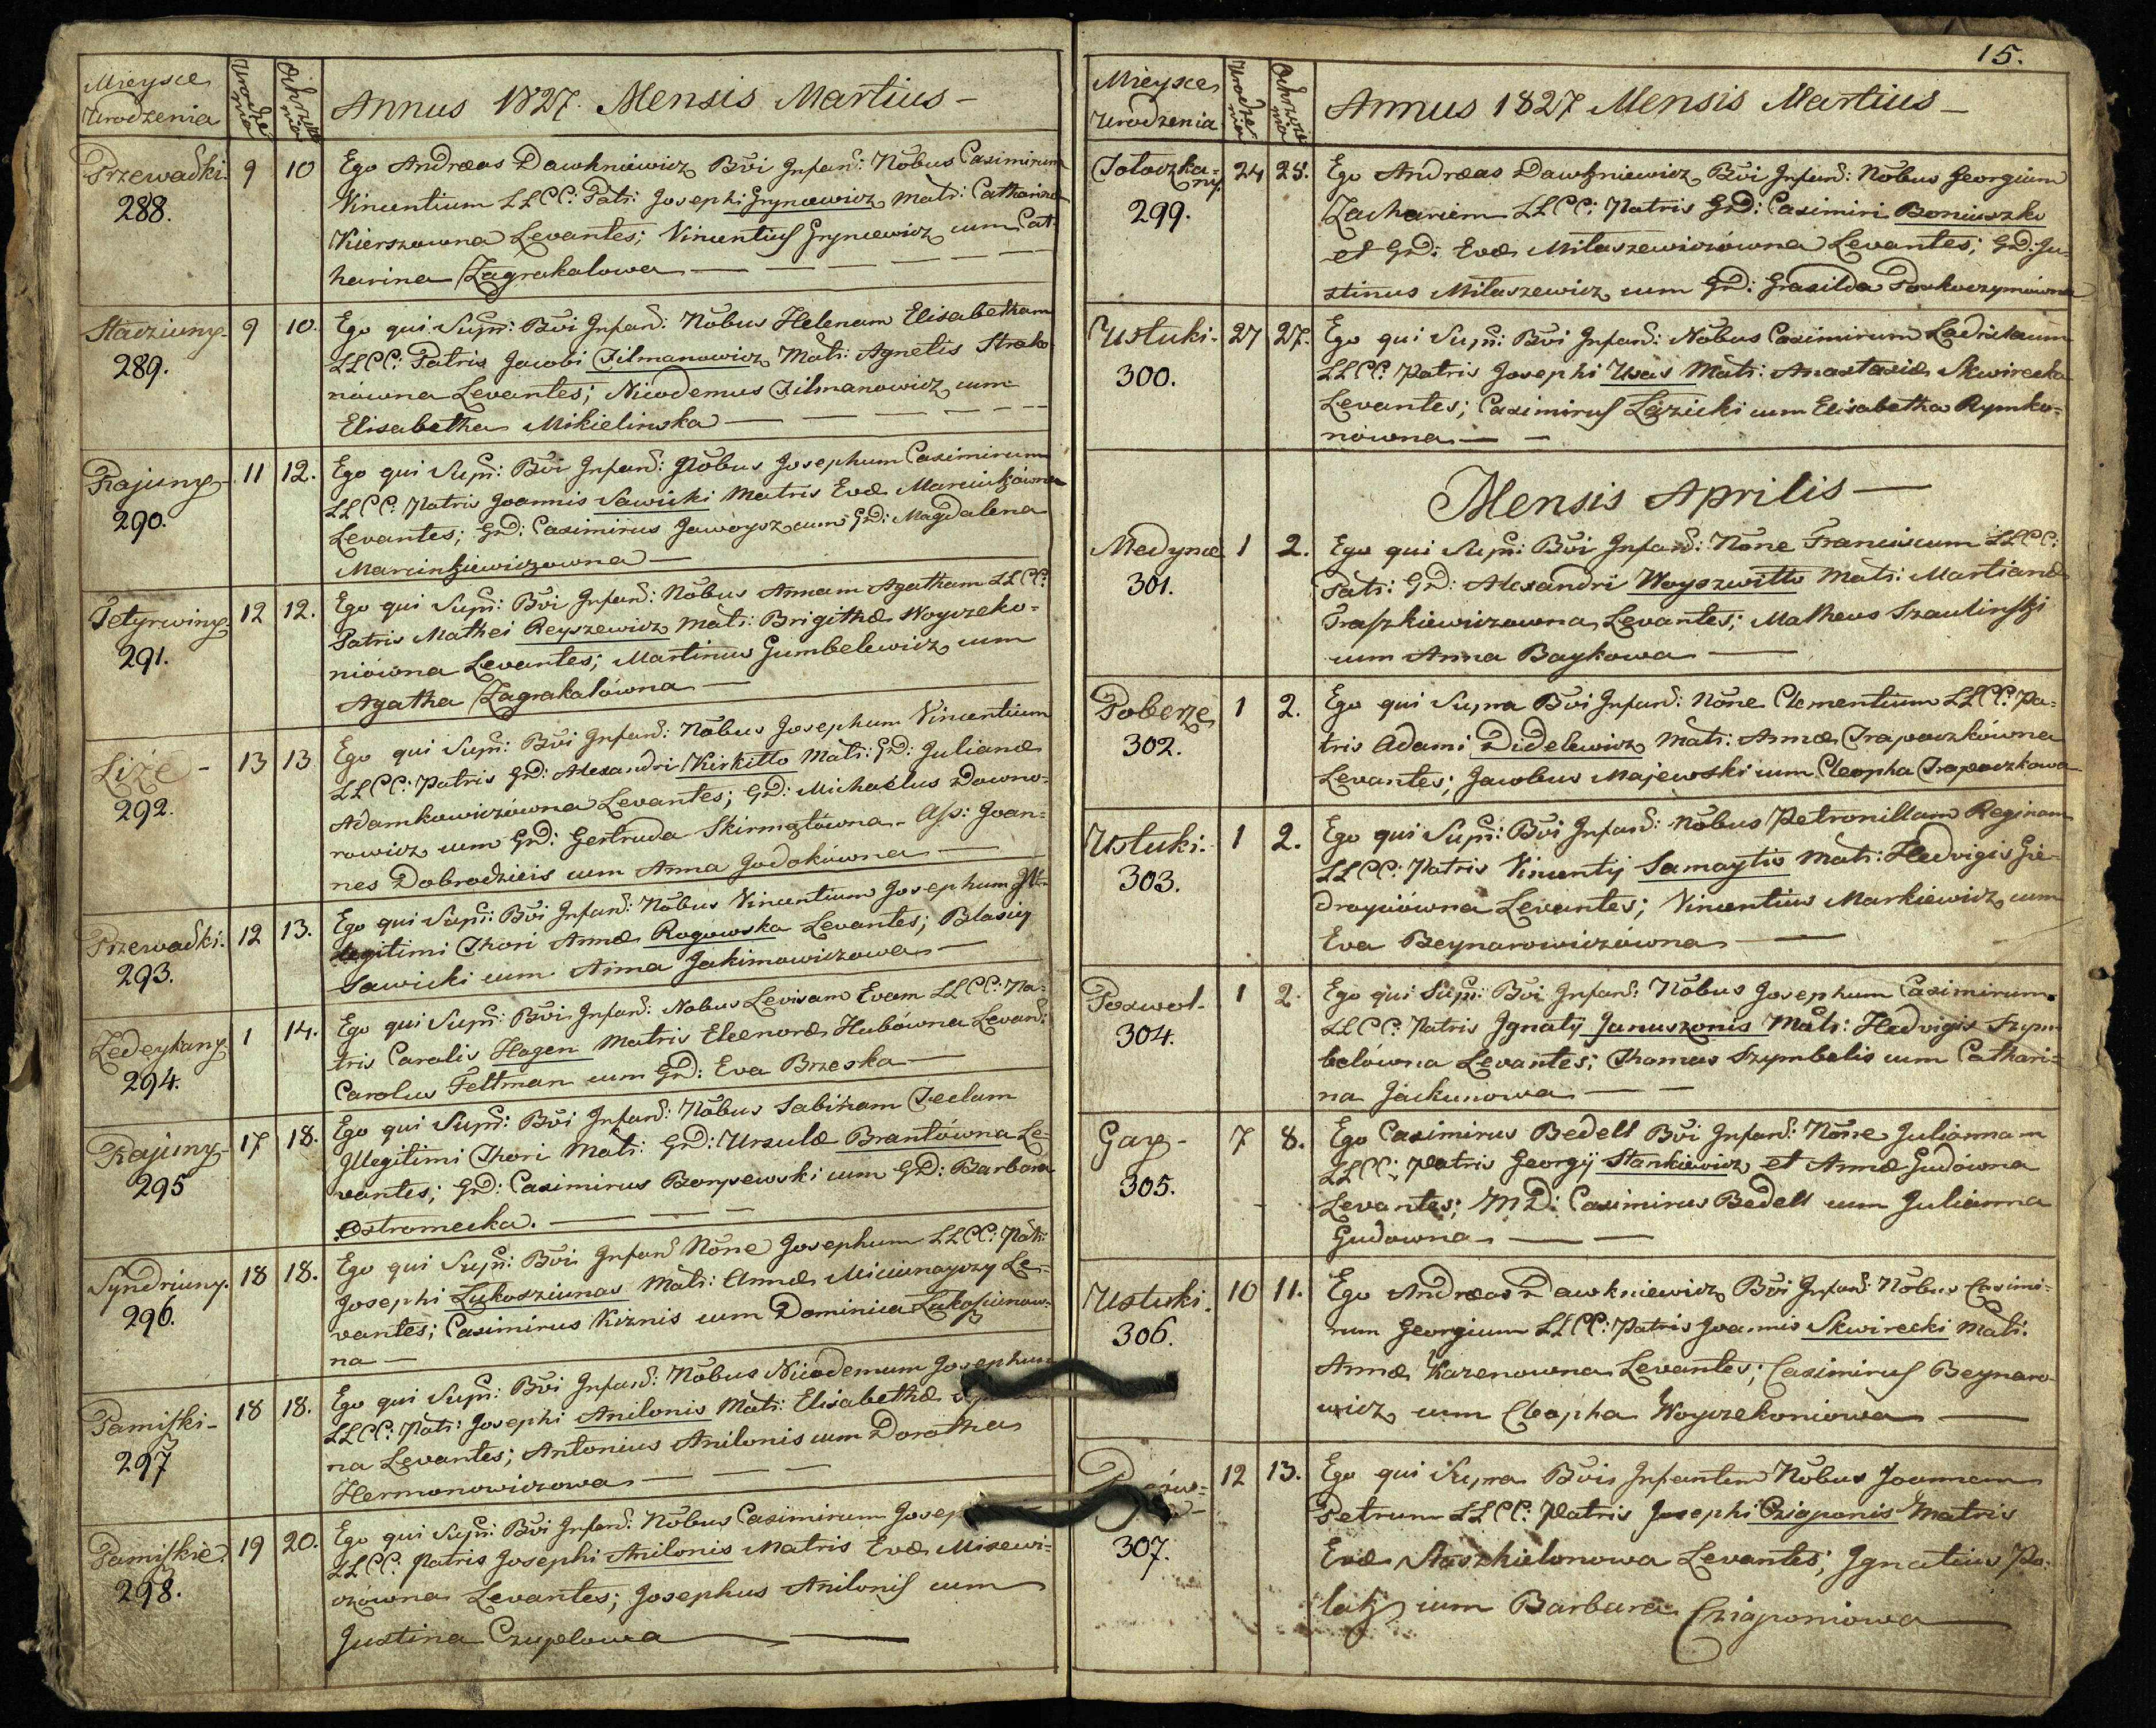 Mieysce Urodzenia
Urodzenia
Ochrzcze nia
Annus 1827. Mensis Martius —
Przewadki. 9 10 Ego Andræas Dawkniewicz Bvi Infan: Nôbus Casimirum
288. Vincentium LLCC: Patri: Josephi Gryncewicz Matr: Catharinæ
Kierszowna Levantes; Vincentius Gryncewicz cum Cat-
harina Zagrakalowa —
Stadziuny. 9 10. Ego qui Supr: Bvi Infan: Nôbus Helenam Elisabetham
289. LLCC: Patris Jacobi Tilmanowicz Matr: Agnetis Strako
nówna Levantes; Nicodemus Tilmanowicz cum
Elisabetha Mikielinska —
Rajuny 11 12. Ego qui Supr: Bvi Infan: Nôbus Josephum Casimirum
290. LLCC: Patris Joannis Sawicki Matris Evæ Marcinkówna
Levantes; GD: Casimirus Jawoysz cum GD: Magdalena
Marcinkiewiczowna —
Tetyrwiny 12 12. Ego qui Supr: Bvi Infan: Nôbus Annam Agatham LLCC:
291. Patris Mathei Reyszewicz Matr: Brigithæ Woyczeko-
niówna Levantes; Martinus Gumbelewicz cum
Agatha Zagrakalówna —
Liże - 13 13 Ego qui Supr: Bvi Infan: Nôbus Josephum Vincentium
292. LLCC: Patris GD: Alexandri Kirkitto Matr: GD: Julianæ
Adamkowiczówna Levantes; GD: Michaelus Downo-
rowicz cum GD: Gertruda Skirmątówna - Ass: Joan-
nes Dobrodzieis cum Anna Godakówna —
Przewadki. 12 13. Ego qui Supr: Bvi Infan: Nôbus Vincentium Josephum Ill-
293. legitimi Thori Annæ Rogowska Levantes; Blasiy
Sawicki cum Anna Jakimowiczowa —
Zedeykany 1 14. Ego qui Supr: Bvi Infan: Nobus Levisam Evam LLCC: Pa-
294. tris Carolis Hagen Matris Eleenoræ Hubówna Levan:
Carolus Feltman cum GD: Eva Brzeska —
Rajuny - 17 18. Ego qui Supr: Bvi Infan: Nôbus Sabinam Teclam
295 Illegitimi Thori Matr: GD: Ursulæ Brantówna Le-
vantes; GD: Casimirus Borysewski cum GD: Barbara
Ostromecka. —
Syndriuny. 18 18. Ego qui Supr: Bvi Infan: Nône Josephum LLCC: Patr:
296. Josephi Lukosziunas Matr: Annæ Miciunayczy Le-
vantes; Casimirus Kiznis cum Dominica Lukosziunow-
na —
Pamiski - 18 18. Ego qui Supr: Bvi Infan: Nôbus Nicodemum Josephum
297 LLCC: Patr: Josephi Anilonis Matr: Elisabethæ
na Levantes; Antonius Anilonis cum Dorothea
Hermonowiczowa —
Pamiskie. 19 20. Ego qui Supr: Bvi Infan: Nôbus Casimirum Josep
298. LLCC: Patris Josephi Anilonis Matris Evæ Misewi-
czówna Levantes; Josephus Anilonis cum
Justina Czuplowa —
15.
Mieysce Urodzenia
Urodze nia
Ochrzcze nia
Annus 1827 Mensis Martius —
Toloczka-ny. 24 25. Ego Andræas Dawkniewicz Bvi Infan: Nôbus Georgium
299. Zachariem LLCC: Patris GD: Casimiri Boniuszko
et GD: Evæ Milaszewiczówna Levantes; GD: Ju-
stinus Milaszewicz cum GD: Grasilda Poskoczymówna
Ustuki. 27 27. Ego qui Supr: Bvi Infan: Nôbus Casimirum Ladislaum
300. LLCC: Patris Josephi Usas Matr: Anastasiæ Skwirecka
Levantes; Casimirus Lazicki cum Elisabetha Rymko-
nówna —
Mensis Aprilis —
Medynie 1 2. Ego qui Supr: Bvi Infan: Nône Franciscum LLCC:
301. Patr: GD: Alexandri Woyszwitto Matr: Martianæ
Traszkiewiczowna Levantes; Matheus Szaulinski
cum Anna Baykowa —
Poberze 1 2. Ego qui Supra Bvi Infan: Nône Clementium LLCC: Pa-
302. tris Adami Didelewicz Matr: Annæ Trapaczkówna
Levantes; Jacobus Majewski cum Cleopha Trapaczkowa
Ustuki. 1 2. Ego qui Supr: Bvi Infan: Nôbus Petronillam Reginam
303. LLCC: Patris Vincentij Samaytis Matr: Hedvigis Gie-
droyciówna Levantes; Vincentius Markiewicz cum
Eva Beynarowiczówna —
Pozwol. 1 2. Ego qui Supr: Bvi Infan: Nôbus Josephum Casimirum
304. LLCC: Patris Ignatij Januszonis Matr: Hedvigis Szym
belówna Levantes; Thomas Szymbelis cum Cathari-
na Jackunowa —
Gay - 7 8. Ego Casimirus Bedell Bvi Infan: Nône Juliannam
305. LLCC: Patris Georgij Stankiewicz et Annæ Gudówna
Levantes; MD: Casimirus Bedell cum Julianna
Gudowna —
Ustuki. 10 11. Ego Andræas Dawkniewicz Bvi Infan: Nôbus Casimi-
306. rum Georgium LLCC: Patris Joannis Skwirecki Matr:
Annæ Kazenowna Levantes; Casimirus Beynaro-
wicz cum Cleopha Woyczekoniowa —
12 13. Ego qui Supra Bvi Infantem Nôbus Joannem
307. Petrum LLCC: Patris Josephi Cziaponis Matris
Evæ Staszkielonowa Levantes; Ignatius Po-
latz cum Barbara Cziaponiowa —